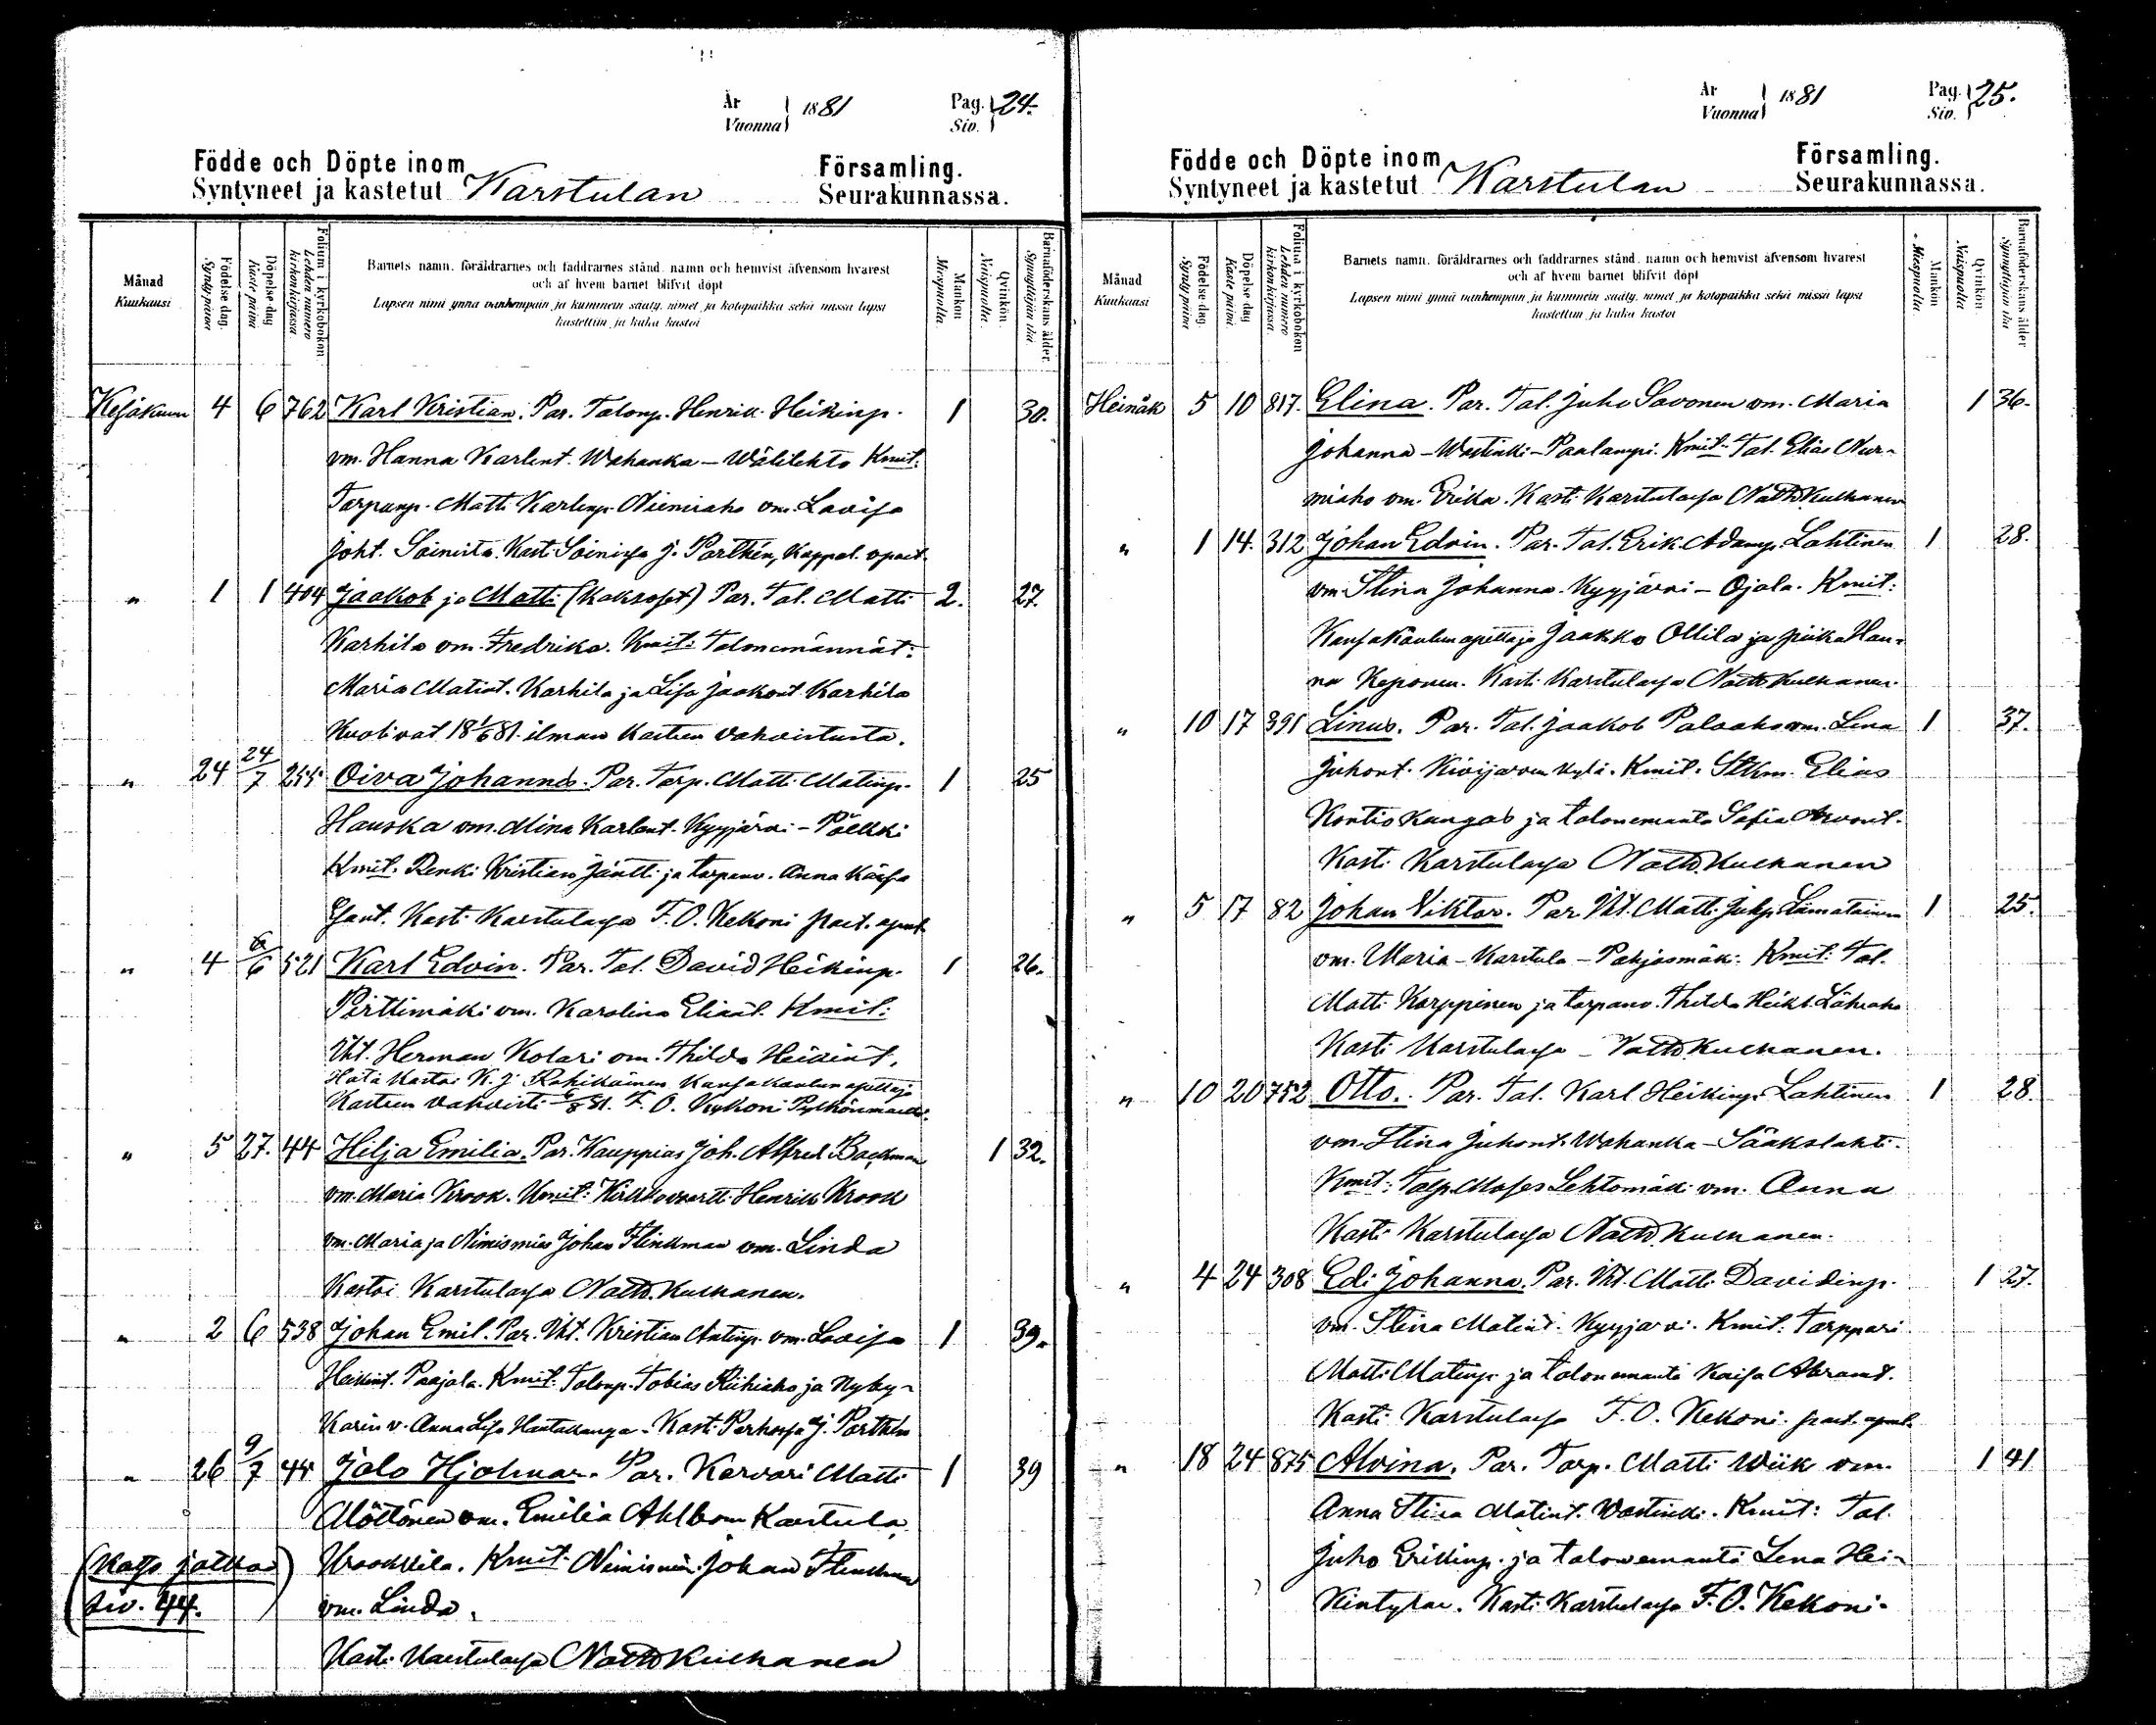 År
Vuonna } 1881
Pag.
Siv. } 24.
Födde och Döpte inom
Syntyneet ja kastetut Karstulan
Församling.
Seurakunnassa.
Månad
Kuukausi
Födelse dag.
Syntypäivä
Döpelse dag
Kaste päivä
Folium i kyrkoboken
Lehden numero kirkonkirjassa.
Barnets namn, föräldrarnes och faddrarnes stånd, namn och hemvist äfvensom hvarest
och af hvem barnet blifvit döpt
Lapsen nimi ynnä vanhempain ja kummein sääty, nimet ja kotopaikka sekä missä lapsi
kastettiin ja kuka kastoi
Mankön
Miespuolta
Qvinkön
Naispuolta.
Barnaföderskans ålder.
Synnyttäjän ikä.
Kesäkuun 4 6 762 Karl Kristian. Par. Talonp. Henrik Heikinp. 1 30.
vm. Hanna Karlent. Wahanka – Wälilehto Kmit:
Torpanp. Matti Karlinp. Niemiaho vm. Lovisa
Joht. Soinista. Kast. Soinissa J. Parthén, Kappal. apact.
" 1 1 404 Jaakob ja Matti (Kaksoset) Par. Tal. Matti 2. 27.
Karhila vm. Fredrika. Kmit: Talonemännät:
Maria Matint. Karhila ja Lisa Jaakont Karhila
Kuolivat 18 1/6 81 ilman kasteen vahvistusta.
" 24 24/7 255 Oiva Johannes. Par. Torp. Matti Matinp. 1 25
Hauska vm. Mina Karlent. Kyyjärvi – Pölkki
Kmit. Renki Kristian Jäntti ja torpanv. Anna Kaisa
Esant. Kasti Karstulassa F. O. Kekoni past. apul.
" 4 6/6 521 Karl Edvin. Par. Tal. David Heikinp. 1 26.
Pirttimäki vm. Karolina Eliaat. Kmit:
Iht. Herman Kolari vm. Thilda Heikint.
Hätä kastoi K. J. Rahikainen Kansakoulun apettaja
Kasteen vahvisti 6/8 81. F. O. Kekoni Pylkönmäellä.
" 5 27. 44 Hilja Emilia. Par. Kauppias Joh. Alfred Backman 1 32.
vm. Maria Krook. Kmit: Kirkkovaartti Henrik Krook
vm. Maria ja Nimismies Johan Flinkman vm. Linda
Kastoi Karstulassa Natth. Kuekanen.
" 2 6 538 Johan Emil. Par. Iht. Kristian Antinp. vm. Lovisa 1 39.
Heikint. Paajala. Kmit. Talonp. Tobias Riihiaho ja Kyky-
Karin v. Anna Lisa Hautakanga. Kasti Perhossa J. Parthén
" 26 9/7 44 Jalo Hjalmar. Par. Karvari Matti 1 39
Möttönen vm. Emilia Ahlbom Karstula
(Katso jatkoa
siv. 44.)
Krookkila. Kmit. Nimismies Johan Flinkman
vm. Linda.
Kasti Karstulassa Natth Kuekanen
År
Vuonna } 1881
Pag.
Siv. } 25.
Födde och Döpte inom
Syntyneet ja kastetut Karstulan
Församling.
Seurakunnassa.
Månad
Kuukausi
Födelse dag.
Syntypäivä
Döpelse dag
Kaste päivä
Folium i kyrkoboken
Lehden numero kirkonkirjassa.
Barnets namn, föräldrarnes och faddrarnes stånd, namn och hemvist äfvensom hvarest
och af hvem barnet blifvit döpt
Lapsen nimi ynnä vanhempain ja kummein sääty, nimet ja kotopaikka sekä missä lapsi
kastettiin ja kuka kastoi
Mankön
Miespuolta
Qvinkön
Naispuolta
Barnaföderskans ålder
Synnyttäjän ikä
Heinäk 5 10 817. Elina. Par. Tal. Juho Savonen vm. Maria 1 36.
Johanna – Wastinki – Paalampi. Kmit: Tal. Elias Nur-
miaho vm. Erika. Kasti Karstulassa Natth Kuekanen
" 1 14. 312 Johan Edvin. Par. Tal. Erik Adamp. Lahtinen 1 28.
vm. Stina Johanna. Kyyjärvi – Ojala. Kmit:
Kansakoulun apettaja Jaakko Ollila ja piika Han-
na Koponen. Kasti Karstulassa Natth Kuekanen.
" 10 17 391 Linus. Par. Tal. Jaakob Palaaho vm. Lena 1 37.
Juhont. Kivijärven kylä. Kmit. Stkm. Elias
Kontiokangas ja talonemäntä Sofia Arvont.
Kasti Karstulassa Natth. Kuekanen
" 5 17 82 Johan Viktor. Par. Iht. Matti Juhp. Lämatainen 1 25.
vm. Maria – Karstula – Pohjasmäki. Kmit: Tal.
Matti Korppinen ja torpanv. Thilda Heikt. Lähiaho
Kasti Karstulassa – Natth. Kuekanen.
" 10 20 752 Otto. Par. Tal. Karl Heikinp. Lahtinen 1 28.
vm. Stina Juhont. Wahanka – Sääkslahti.
Kmit: Talp. Moses Lehtomäki vm. Anna
Kasti Karstulassa Natth. Kuekanen.
" 4 24 308 Edi Johanna. Par. Iht. Matti Davidinp. 1 27.
vm. Stina Matint. Kyyjärvi. Kmit: Torppari
Matti Matinp. ja talonemäntä Kaisa Abramt.
Kasti Karstulassa F. O. Kekoni. past. apul.
" 18 24 875 Alvina. Par. Torp. Matti Wiik vm. 1 41
Anna Stina Matint. Vastinki. Kmit: Tal.
Juho Erikinp. ja talonemäntä Lena Hei-
kintytär. Kasti Karstulassa F. O. Kekoni.